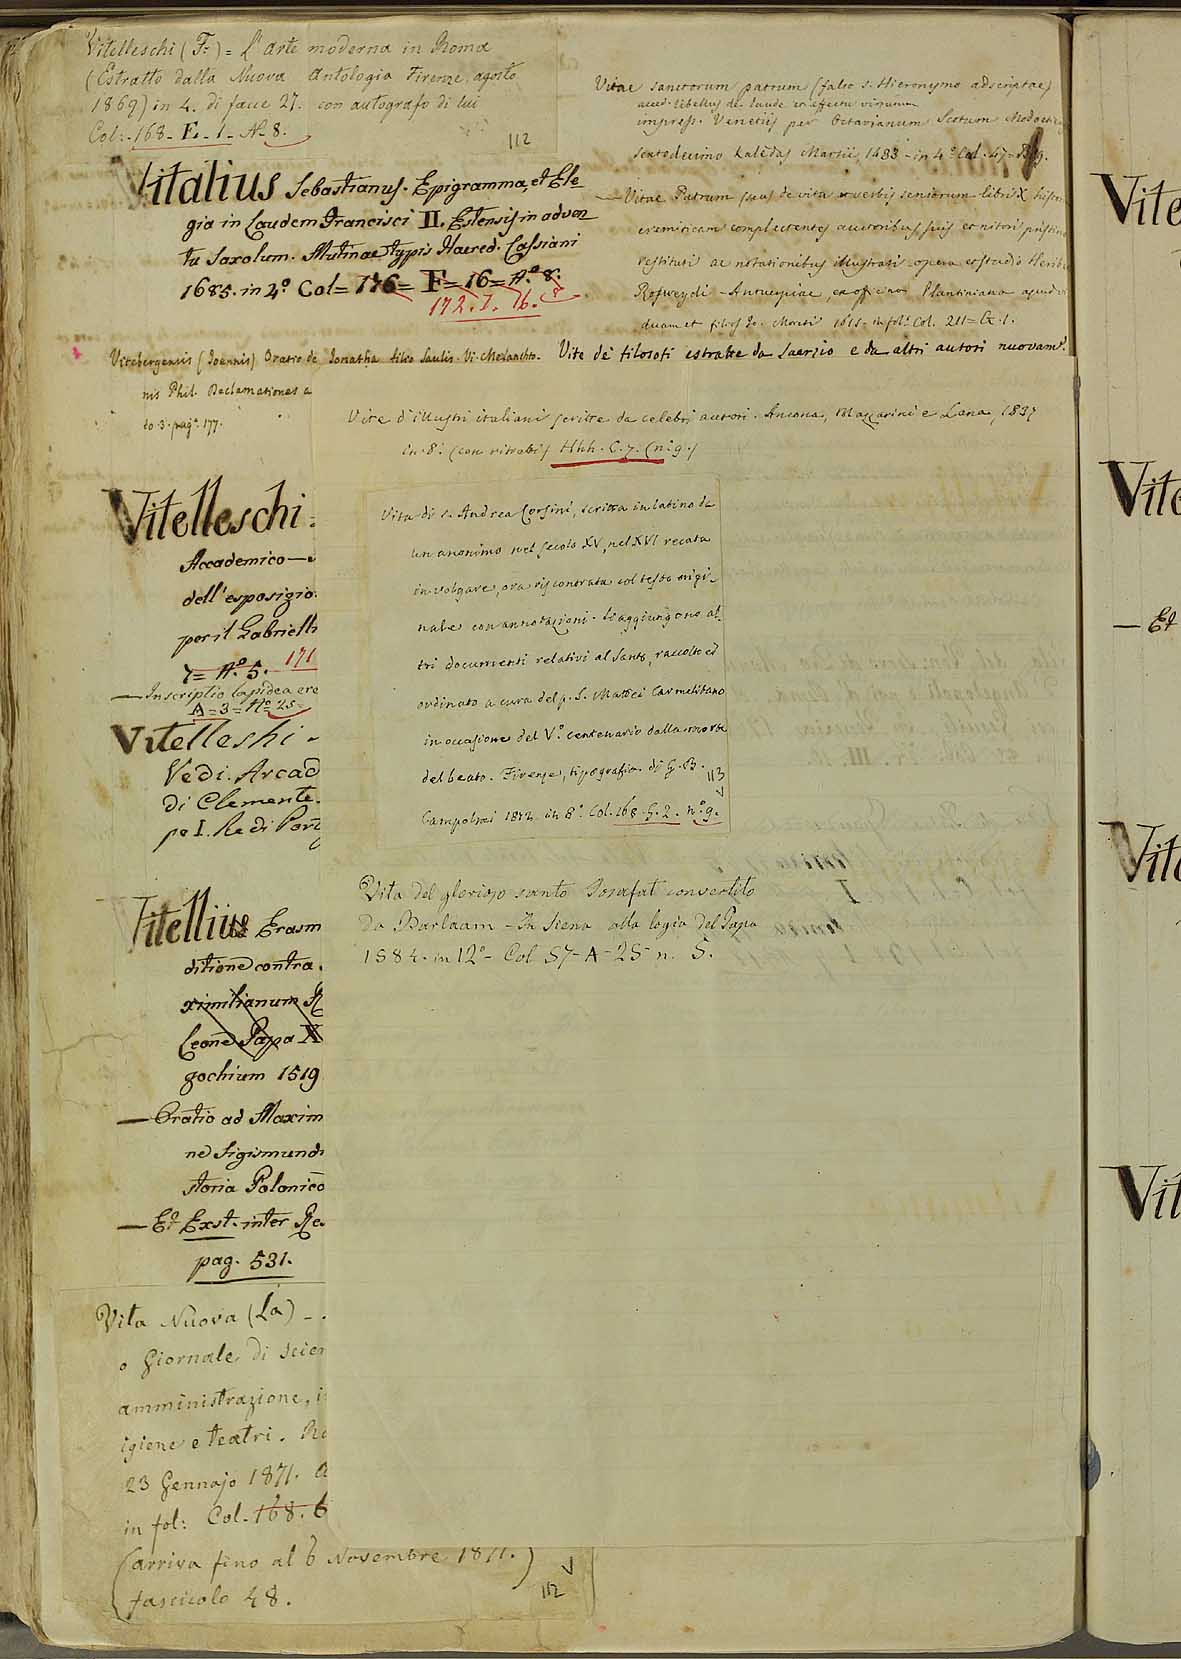 Vitelleschi (F.) = L'Arte moderna in Roma
(Estratto dalla Nuova Antologia Firenze, agosto
1869) in 4. di facce 27. con autografo di lui
Col: 168. E. 1. Nº 8.
112
Vitalius Sebastianus. Epigramma, et Ele-
gia in Laudem Francisci II. Estensis in adven
tu Saxolum. Mutinae typis Haered. Cassiani
1685. in 4º Col = 176 = F = 16 = Nº 8.
172. I. 16.
Vitebergensis (Joennis) Oratio de Jonatha filio Saulis. Vi. Melanchto-
nis Phil. Declamationes a
do 3. pagª 177.
Vitelleschi =
Accademico —
dell'esposizio
per il Gabrielli
7 = Nº 5. 171
— Inscriptio lapidea ere
A = 3 = Nº 25 =
Vitelleshi -
Vedi. Arcad
di Clemente.
pe I. Re di Port
Vitellius Erasm
ditione contra.
ximilianum R
Leone Papa X
gochium 1519
— Oratio ad Maxim
ne Sigismundi
storia Polonico
— Et Exst. inter Re
pag. 531.
Vita Nuova (La) - .
o Giornale di scien
amministrazione, i
igiene e teatri. Ro
23 Gennajo 1871. a
in fol: Col. 168. 6
(arriva fino al 6 Novembre 1871.)
fascicolo 48.
112
Vitae sanctorum patrum (falso s. Hieronymo adscriptae)
acced. libellus de laude et effectu virtutum
impress. Venetiis per Octavianum Scotum Modoetie
sextodecimo Kalendas Martii, 1483 - in 4º Col. 47 =
— Vitae Patrum seu de vita et verbis seniorum libri X histor
eremiticam complectentes auctoribus suis et nitori pristino
restituti ac notationibus illustrati opera et studio Heribe
Rosweydi - Antuerpiae, ex officina Plantiniana apud vi
duam et filios Jo. Moreti 1615 - in fol. Col. 211 = G. 1.
Vite de' filosofi estratte da Laerzio e da altri autori nuovam.
Vite d'illustri italiani scritte da celebri autori. Ancona, Mazzarini e Lana, 1837
in 8º (con ritratti) Hhh. C. 7. (nº 9.)
Vita di s. Andrea Corsini, scritta in latino da
un anonimo nel secolo XV, nel XVI recata
in volgare, ora riscontrata col testo origi-
nale con annotazioni. Si aggiungono al-
tri documenti relativi al Santo, raccolti ed
ordinati a cura del p. S. Mattei Carmelitano
in occasione del Vº centenario dalla morte
del beato. Firenze, tipografia di G. B.
Campolmi 1872 in 8º Col. 168. G. 2. nº 9.
113
Vita del glorioso santo Josafat convertito
da Barlaam - In Siena alla logia del Papa
1584. in 12º - Col 57 - A - 25 - n. 5.
Vite
Vite
— Et
Vite
Vit